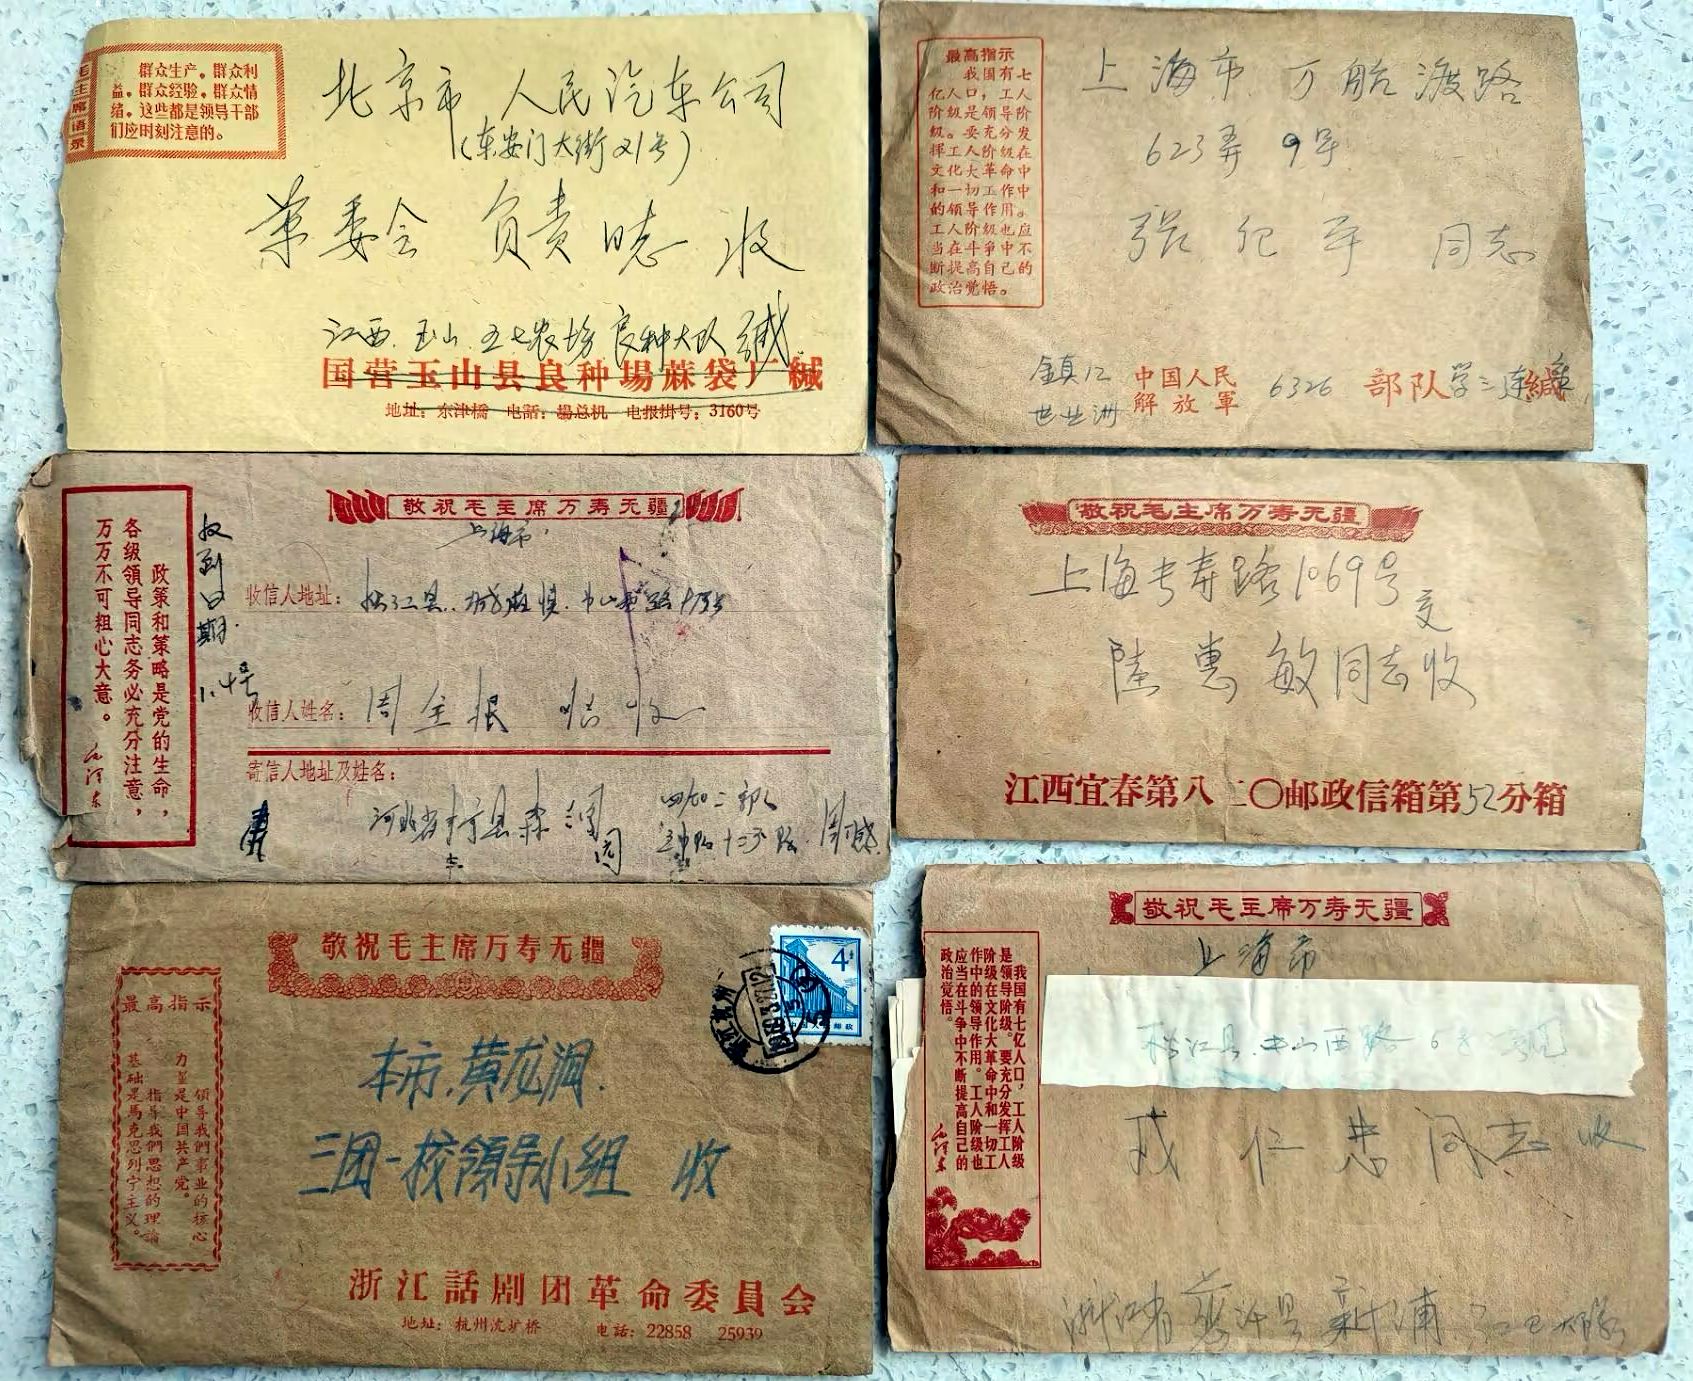 毛主席语录
群众生产，群众利
益，群众经验，群众情
绪，这些都是领导干部
们应时刻注意的。
北京市 人民汽车公司
（东安门大街21号）
革委会 负责同志 收
江西.玉山.五七农场良种大队 缄
国营玉山县良种場蔴袋厂缄
地址：东津橋 电話：場总机 电报掛号：3160号
最高指示
我国有七
亿人口，工人
阶级是领导阶
级。要充分发
挥工人阶级在
文化大革命中
和一切工作中
的领导作用。
工人阶级也应
当在斗争中不
断提高自己的
政治觉悟。
上海市 万航渡路
623弄 9号
张纪平 同志
鎮江
世业洲
中国人民
解放軍
6326 部队 学三连 緘
政策和策略是党的生命，
各级领导同志务必充分注意，
万万不可粗心大意。
毛泽东
收到日期
敬祝毛主席万寿无疆
上海市
收信人地址：松江县
收信人姓名：周全根 收
寄信人地址及姓名：
河北省
敬祝毛主席万寿无疆
上海长寿路1069号
交
陆惠敏同志收
江西宜春第八二〇邮政信箱第52分箱
敬祝毛主席万寿无疆
最高指示
领导我們事业的核心
力量是中国共产党。
指导我們思想的理論
基础是馬克思列宁主义。
4分
中国人民邮政
本市.黄龙洞.
三团一校領导小组 收
浙江話剧团革命委員会
地址：杭州沈圹桥 电話：22858 25939
敬祝毛主席万寿无疆
我国有七亿人口，工人阶级
是领导阶级。要充分发挥工人
阶级在文化大革命中和一切工
作中的领导作用。工人阶级也
应当在斗争中不断提高自己的
政治觉悟。
毛泽东
上海市
松江县.中山西路
戎仁忠同志收
浙江省 新浦